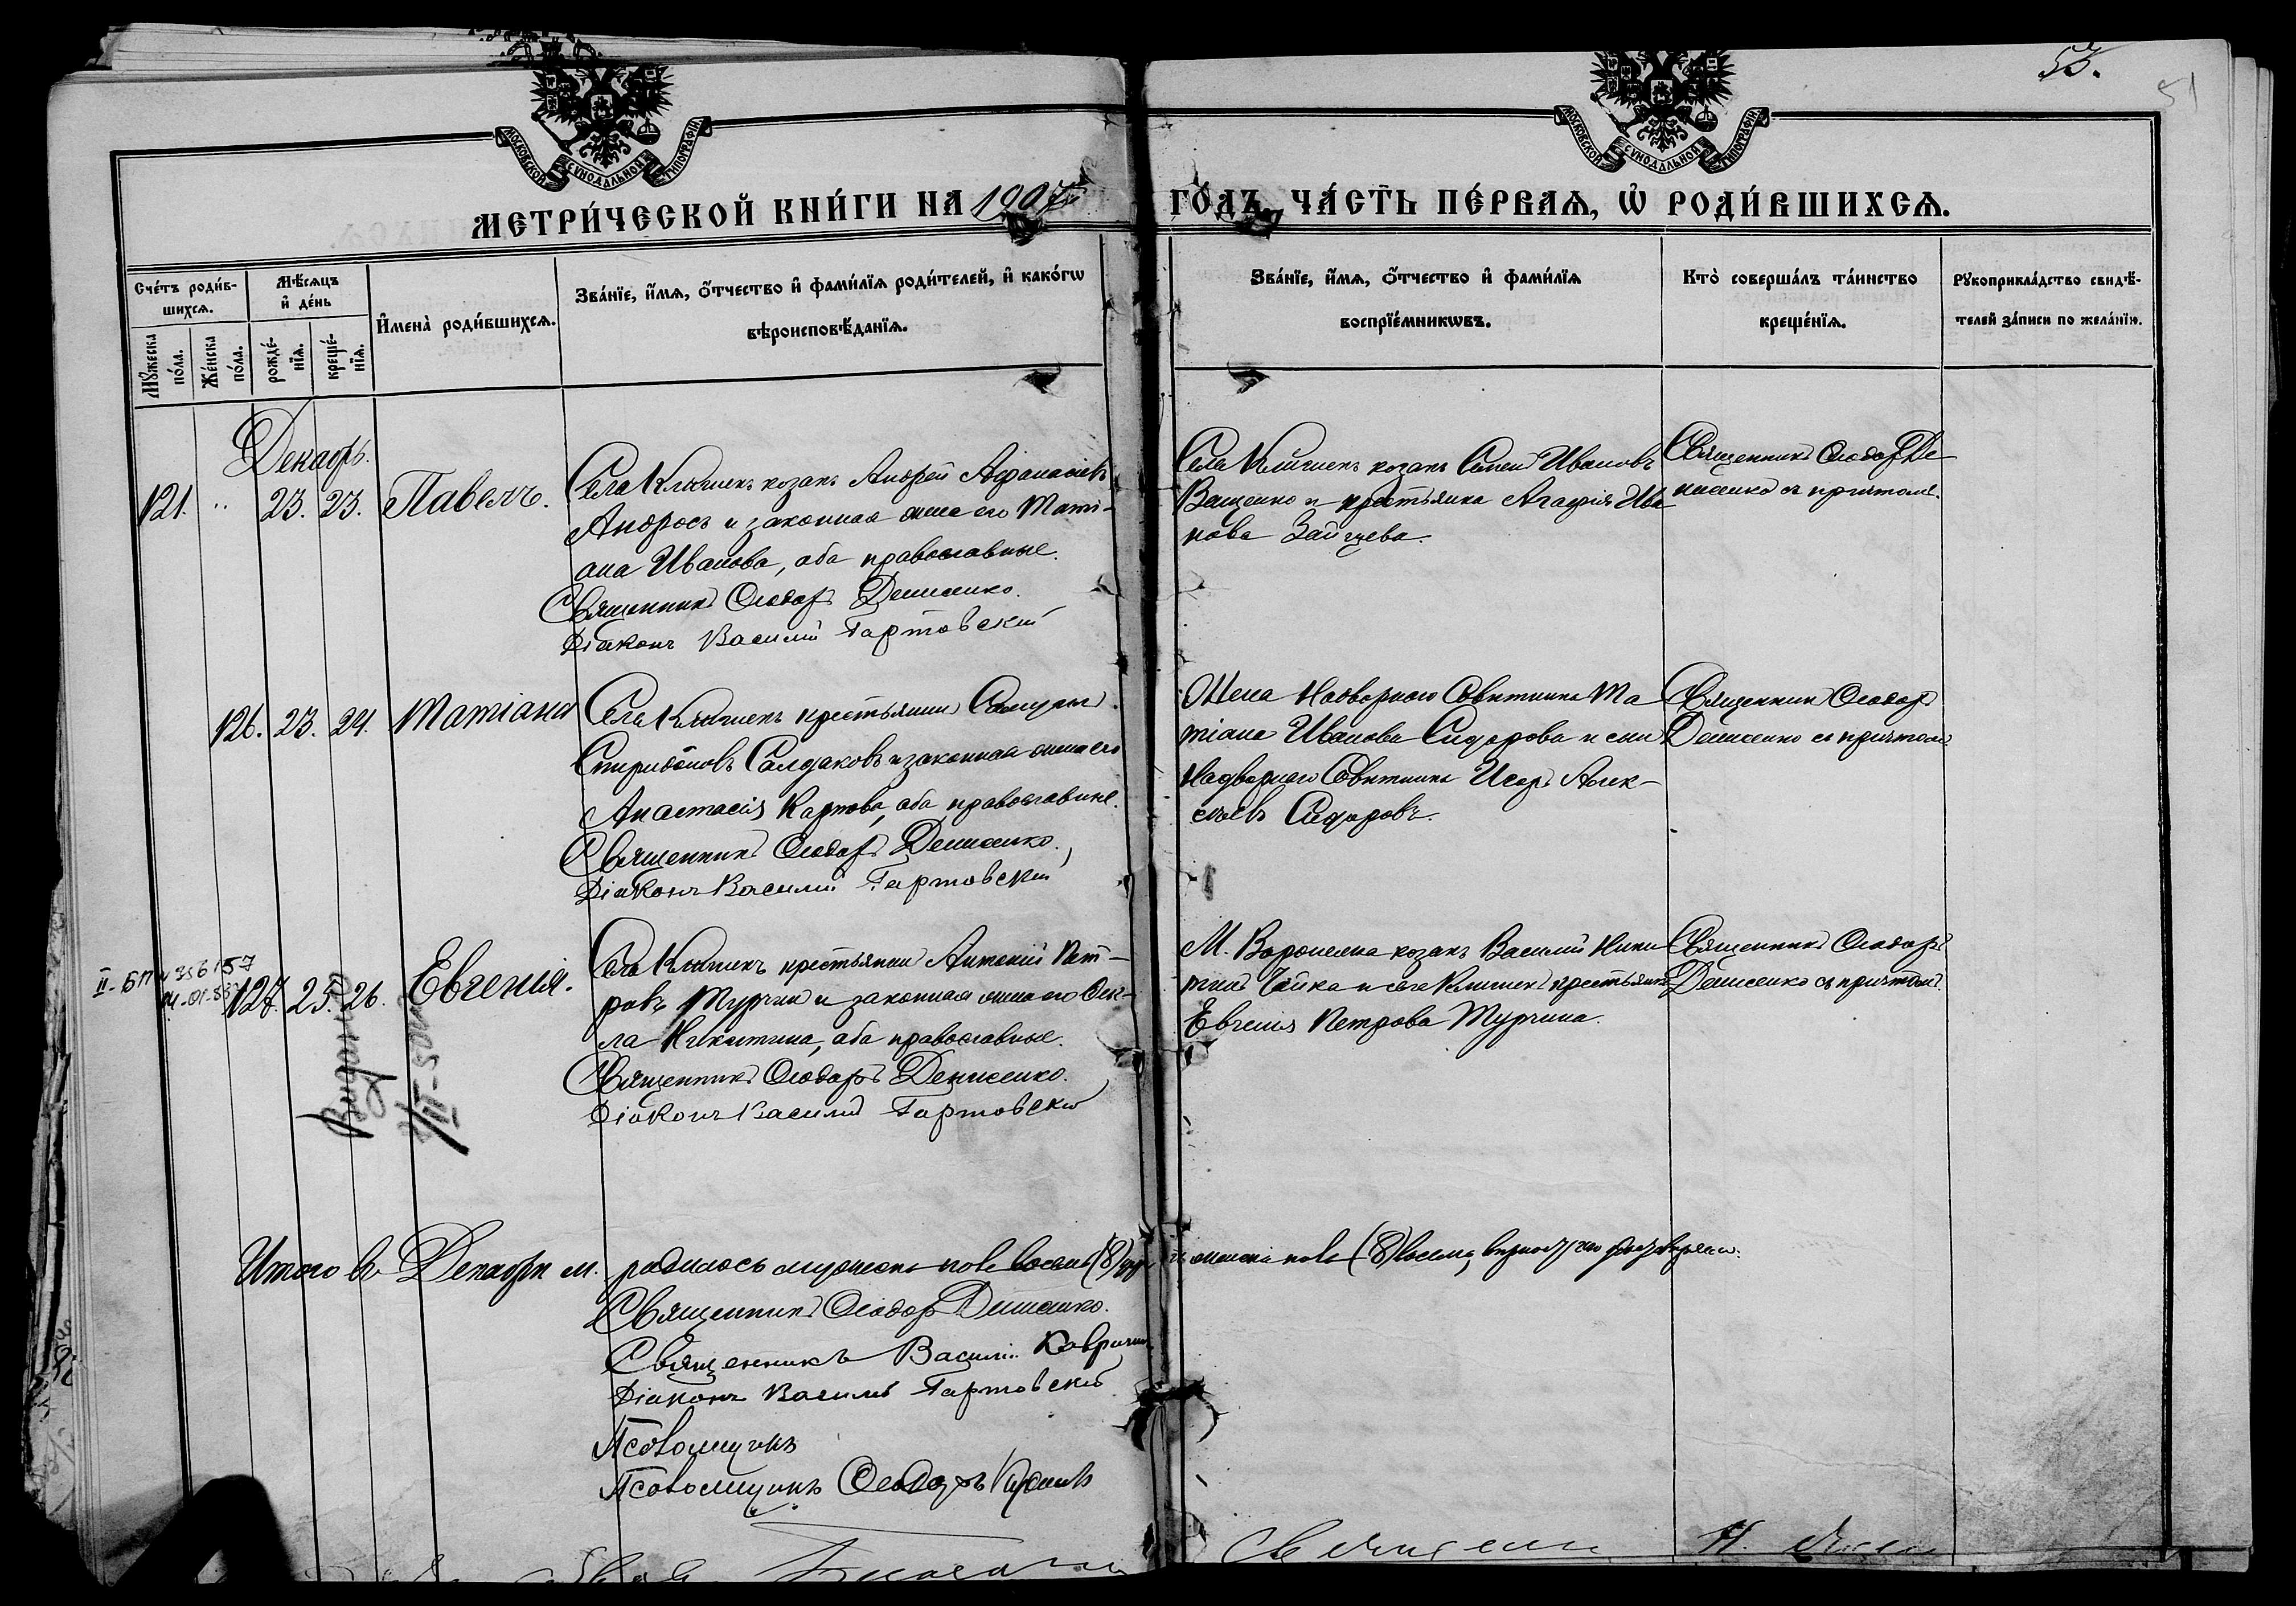 53.
51
МОСКОВСКОЙ СѴНОДАЛЬНОЙ ТИПОГРАФІИ
МОСКОВСКОЙ СѴНОДАЛЬНОЙ ТИПОГРАФІИ
МЕТРИ́ЧЕСКОЙ КНИ́ГИ НА 1907
ГО́ДЪ, ЧА́СТЬ ПЕ́РВАѦ, Ѡ҆ РОДИ́ВШИХСѦ.
Сче́тъ роди́в-
шихсѧ.
Мꙋ́жеска по́ла.
Же́нска по́ла.
Мѣ́сѧцъ
и҆ де́нь
рожде́-
нїѧ.
креще́-
нїѧ.
И҆мена̀ роди́вшихсѧ.
Зва́нїе, и҆́мѧ, о҆́тчество и҆ фами́лїѧ роди́телей, и҆ како́гѡ
вѣроисповѣ́данїѧ.
Зва́нїе, и҆́мѧ, о҆́тчество и҆ фами́лїѧ
воспрїе́мникѡвъ.
Кто̀ соверша́лъ та́инство
креще́нїѧ.
Рꙋкоприкла́дство свидѣ́-
телей за́писи по жела́нїю.
Декабрь.
121. " 23. 23. Павелъ.
Села Клишекъ козакъ Андрей Афанасіевъ
Андросъ и законная жена его Тати-
ана Иванова, оба православные.
Священникъ Ѳеодоръ Денисенко.
Діаконъ Василій Гартовскій
Села Клишекъ козакъ Ивановъ
Ващенко и крестьянка Агафія Ива
нова Зайцева.
Священникъ Ѳеодоръ Де-
нисенко съ причтомъ.
126. 23. 24. Татіана
Села Клишекъ крестьянинъ
Спиридоновъ Салдаковъ и законная жена его
Анастасія Карпова, оба православные.
Священникъ Ѳеодоръ Денисенко.
Діаконъ Василій Гартовскій
Жена Надворнаго Совѣтника Та
тіана Иванова Сидорова и сынъ
Надворнаго Совѣтника Алек-
сѣевъ Сидоровъ.
Священникъ Ѳеодоръ
Денисенко съ причтомъ.
II-БП № 356157
127. 25. 26. Евгенія.
Села Клишекъ крестьянинъ Антоній Пет-
ровъ Турчинъ и законная жена его Ѳек-
ла Никитина, оба православные.
Священникъ Ѳеодоръ Денисенко.
Діаконъ Василій Гартовскій
М. Воронежа козакъ Василій Ники
тинъ Чайка и села Клишекъ крестьянка
Евгенія Петрова Турчина.
Священникъ Ѳеодоръ
Денисенко съ причтомъ.
Итого въ Декабрѣ м. родилось мужеска пола восемь (8)
женска пола (8) восемь,
Священникъ Ѳеодоръ Денисенко.
Священникъ Василій
Діаконъ Василій Гартовскій
Псаломщикъ
Псаломщикъ Ѳеодоръ